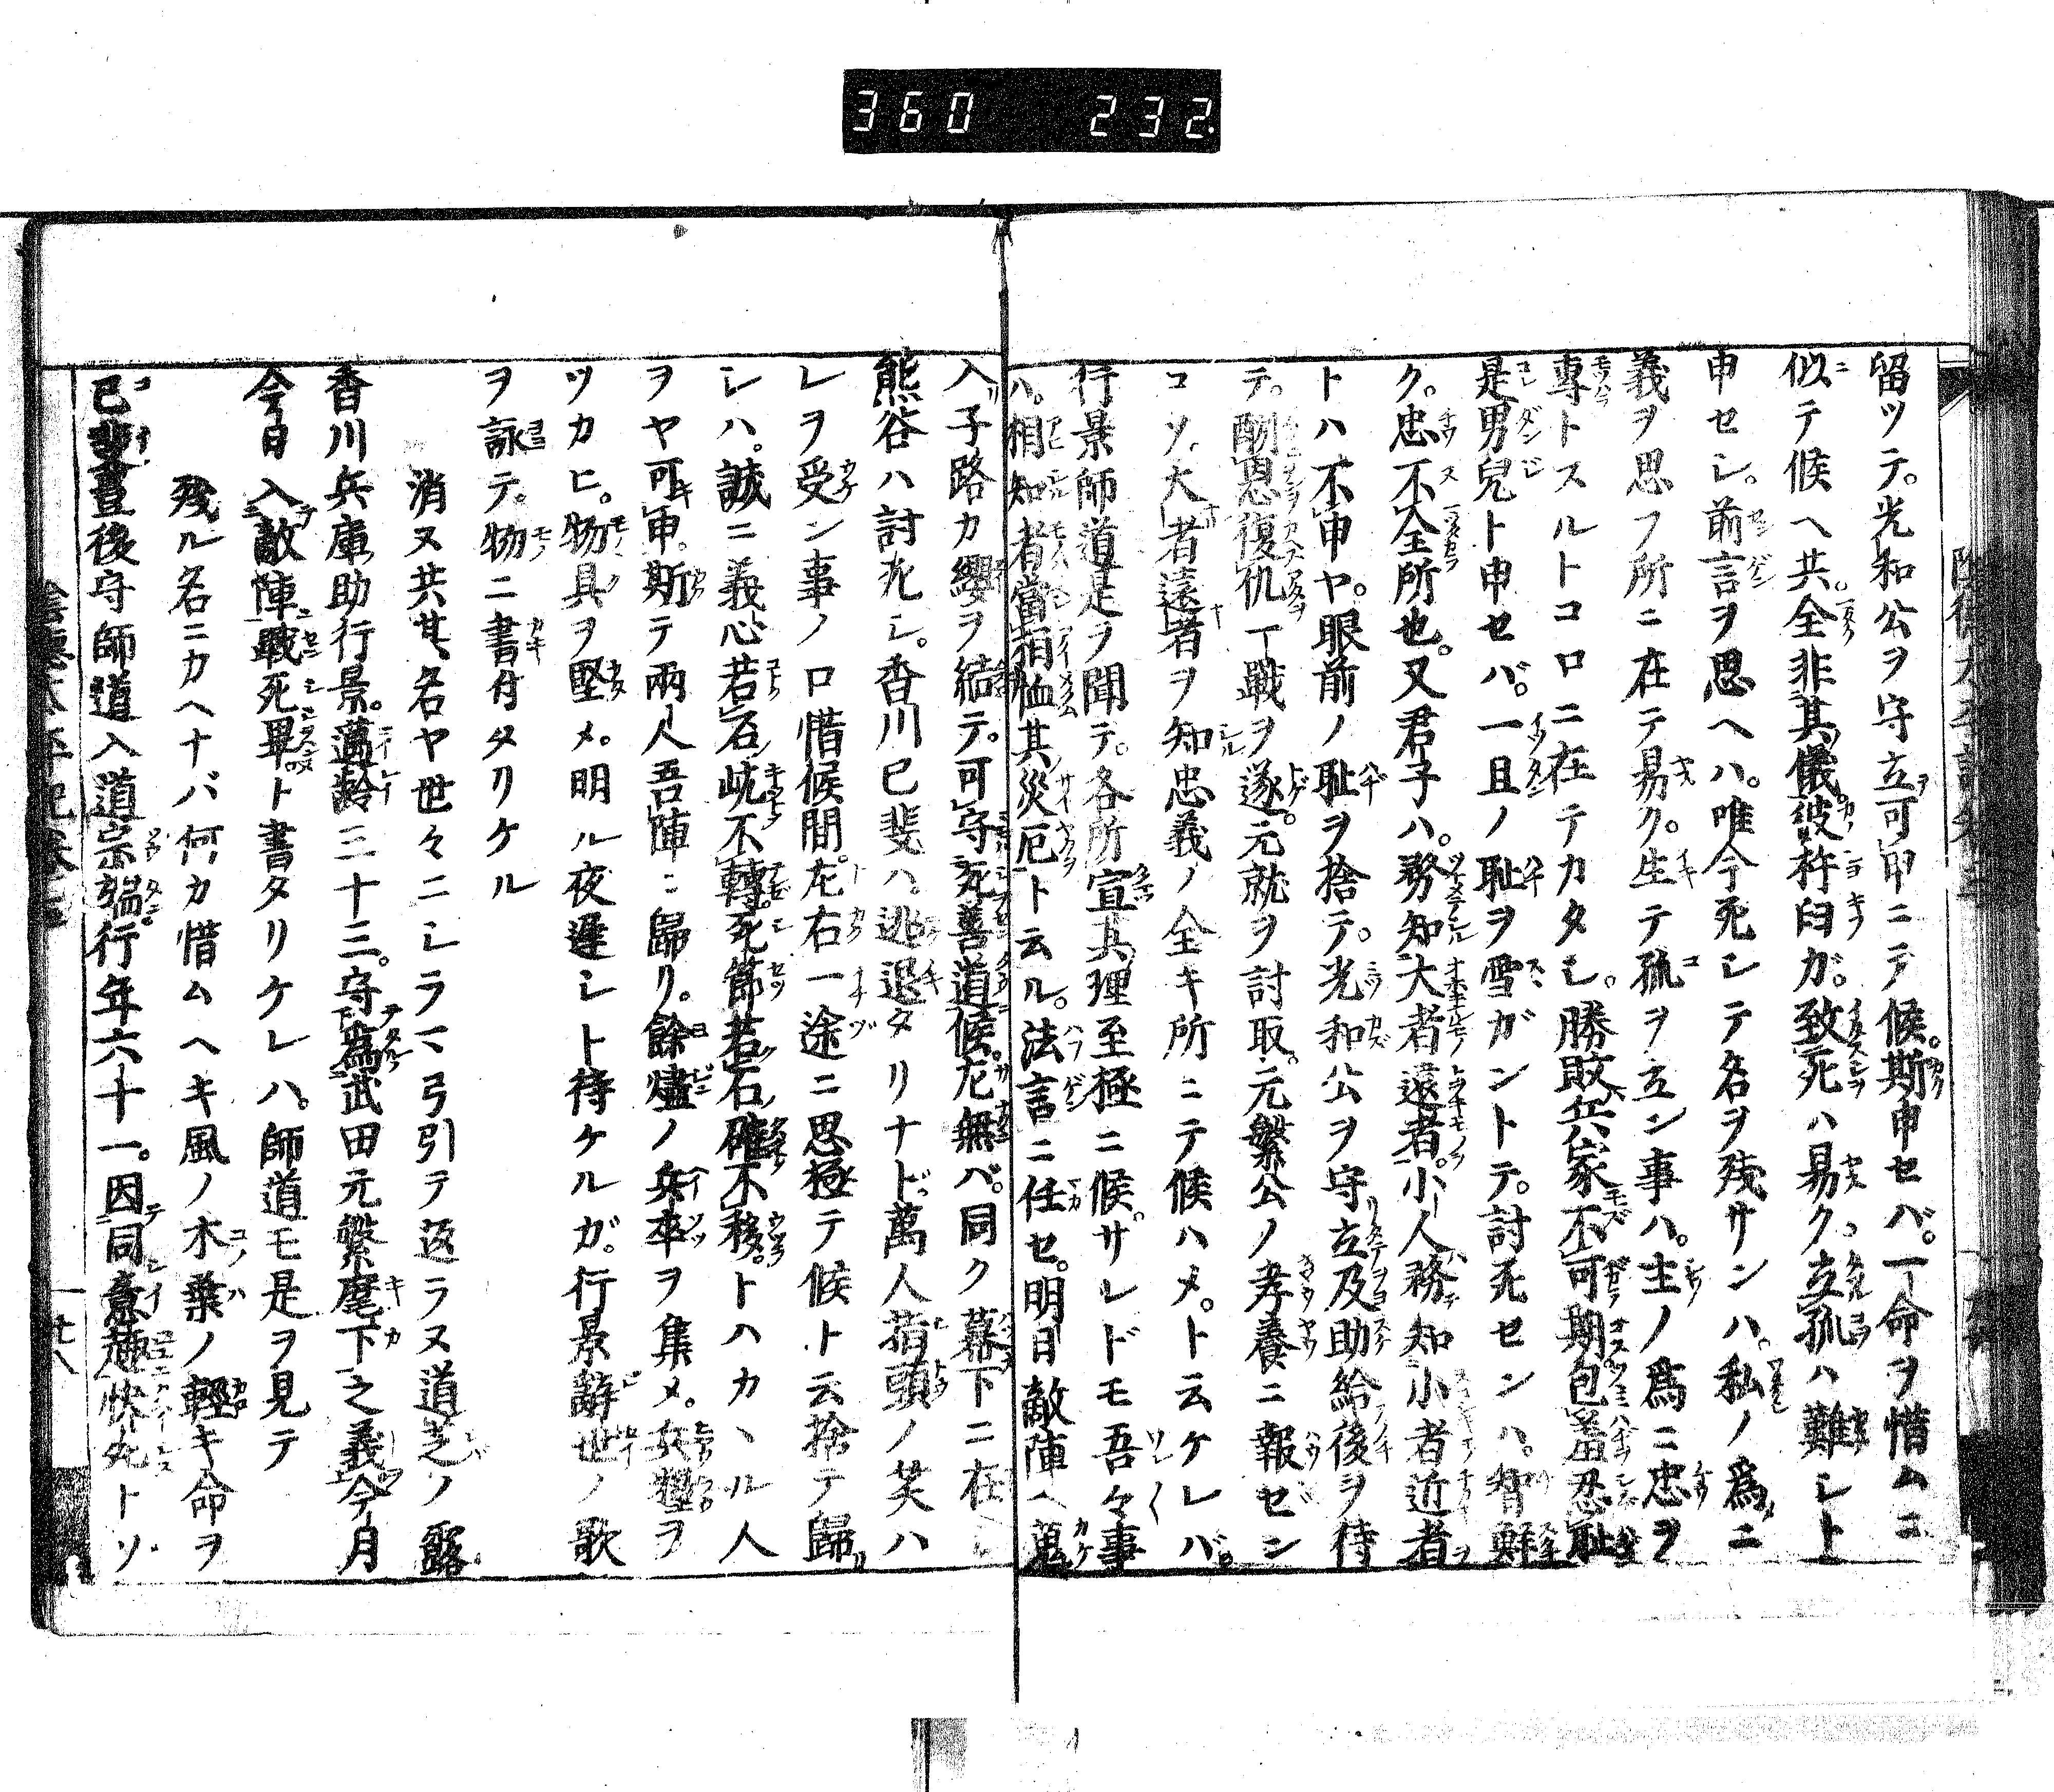 360 232
留ツテ。光和公ヲ守立可申ニテ候。斯申セバ。一命ヲ惜ムニ
似テ候ヘ共。全非其儀。彼杵臼ガ。致死ハ易ク。立孤ハ難シト
申セシ。前言ヲ思ヘハ。唯今死シテ名ヲ残サンハ。私ノ為ニ
義ヲ思フ所ニ在テ易ク。生テ孤ヲ立ン事ハ。主ノ為ニ忠ヲ
専トスルトコロニ在テカタシ。勝敗兵家不可期。包羞忍耻
是男兒ト申セバ。一旦ノ耻ヲ雪ガントテ。討死センハ。智鮮
ク。忠不全所也。又君子ハ。務知大者遠者。小人務知小者近者
トハ不申ヤ。眼前ノ耻ヲ捨テ。光和公ヲ守立及助給後ヲ待
テ。酬恩復仇一戰ヲ遂。元就ヲ討取。元繁公ノ孝養ニ報セン
コソ。大者遠者ヲ知忠義ノ全キ所ニテ候ハメ。ト云ケレバ。
行景師道是ヲ聞テ。各所宣其理至極ニ候。サレドモ吾々事
ハ。相知者當相恤其災厄ト云ル。法言ニ任セ。明日敵陣ヘ
入。子路カ纓ヲ結テ。可守死善道候。左無バ。同ク幕下ニ在
熊谷ハ討死シ。香川已斐ハ逃退タリナド。萬人指頭ノ笑ハ
レヲ受ン事ノ口惜候間。左右一途ニ思極テ候ト云捨テ歸
シハ。誠ニ義心若石岐不轉。死節若石確不移。トハカヽル人
ヲヤ可申。斯テ兩人吾陣ニ歸リ。餘燼ノ兵卒ヲ集メ。兵糧ヲ
ツカヒ。物具ヲ堅メ。明ル夜遲シト待ケルガ。行景辭世ノ歌
ヲ詠テ。物ニ書付タリケル
消ヌ共其名ヤ世々ニシラマ弓引テ返ラヌ道芝ノ露
香川兵庫助行景。邁齢三十三。守為武田元繁麾下之義今月
今日入敵陣戰死畢ト書タリケレハ。師道モ是ヲ見テ
残ル名ニカヘナバ何カ惜ムヘキ風ノ木葉ノ輕キ命ヲ
已斐豊後守師道入道宗端。行年六十一。因同意趣快死トソ
陰徳太平記卷
廿八